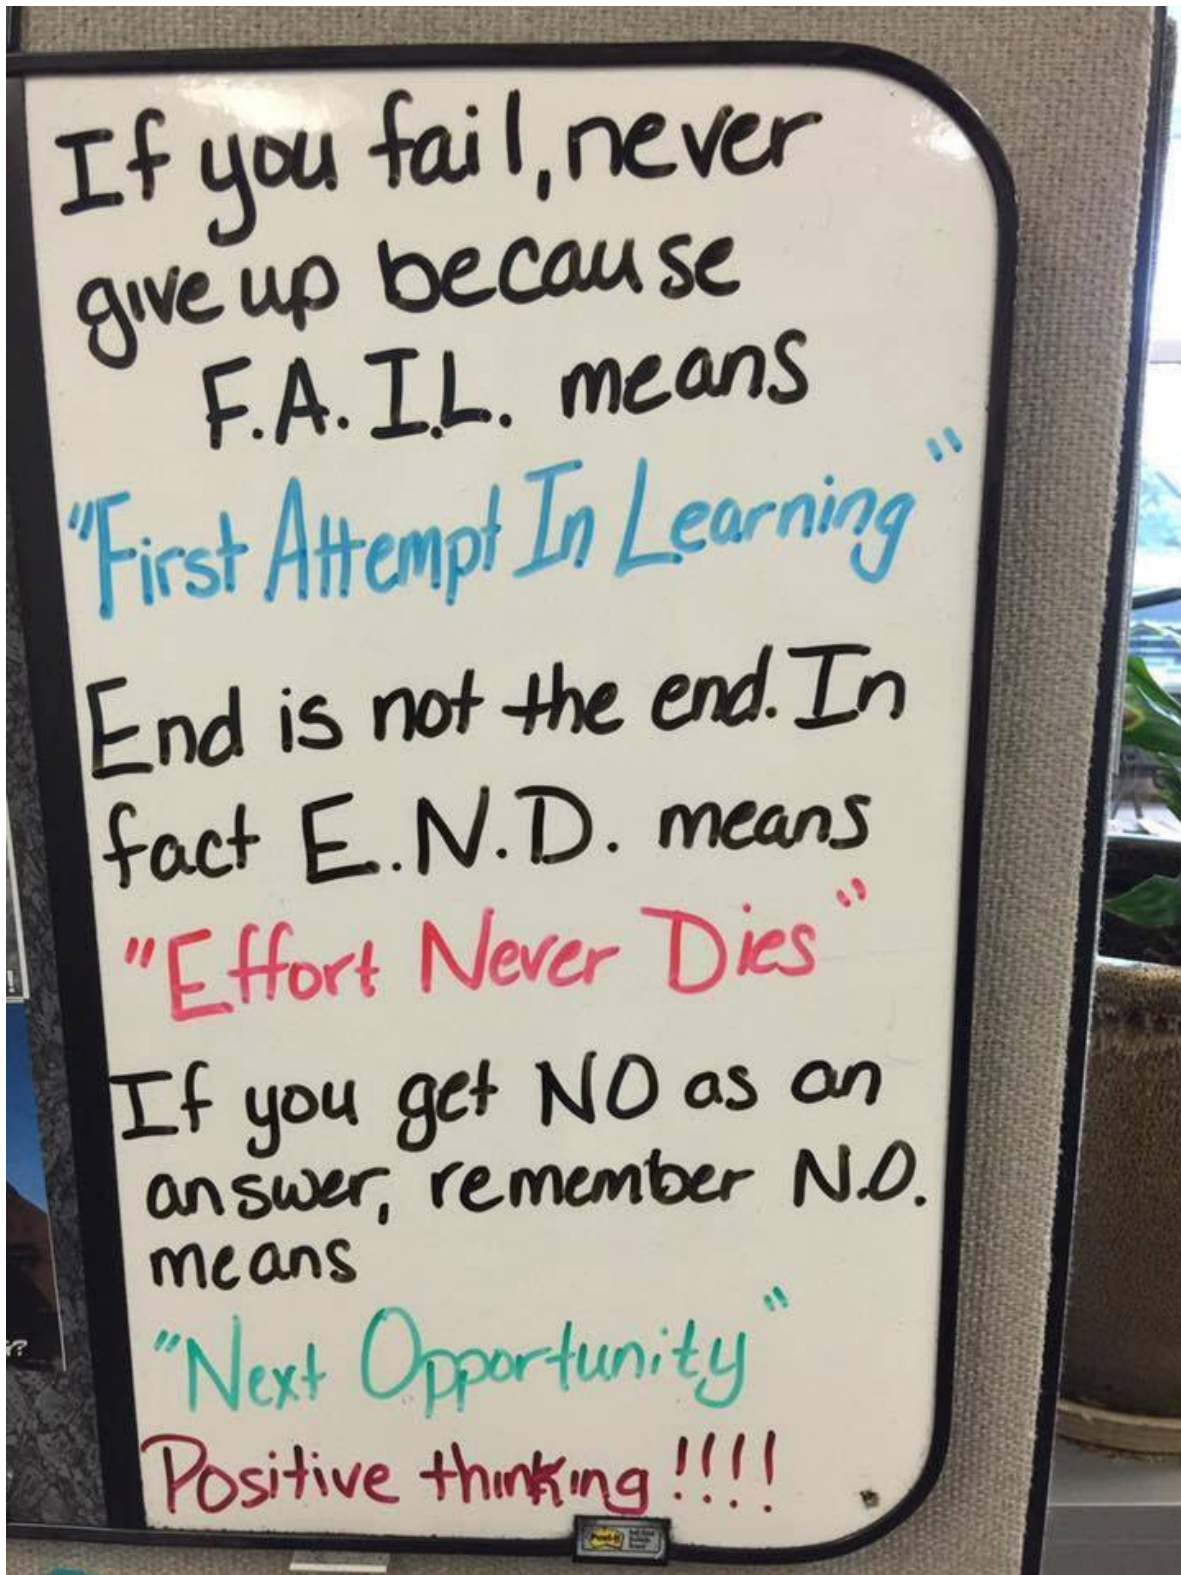 If you fail, never
give up because
F.A.I.L. means
"First Attempt In Learning"
End is not the end. In
fact E.N.D. means
"Effort Never Dies"
If you get NO as an
answer, remember N.O.
means
"Next Opportunity"
Positive thinking!!!!
Post-it